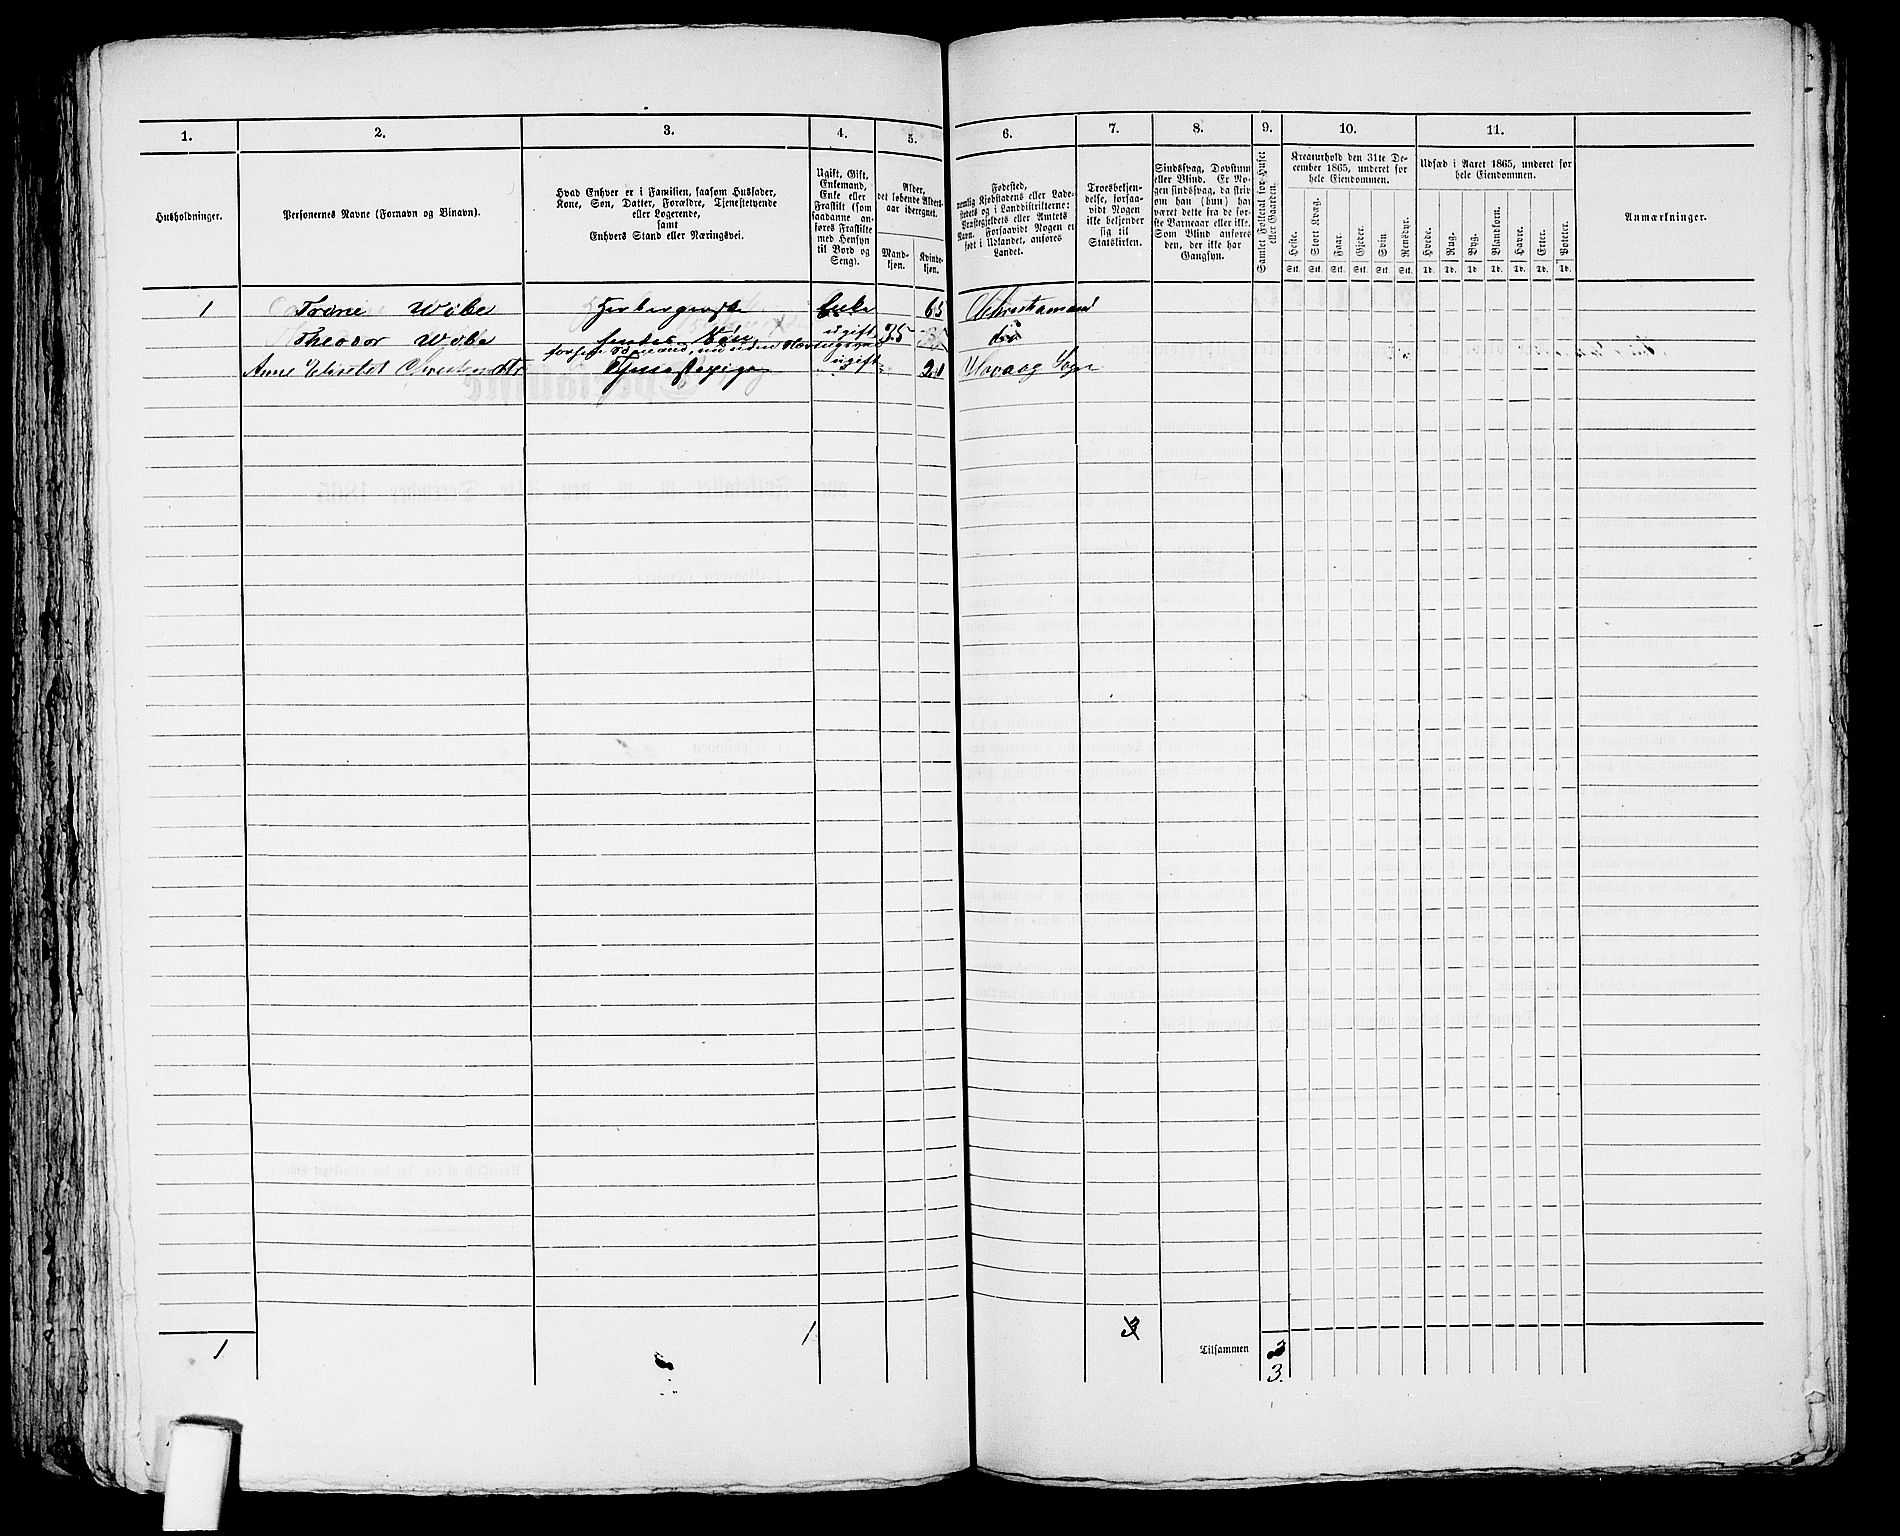 1. 2. 3. 4. 5. 6. 7. 8. 9. 10. 11.
Husholdninger.
Personernes Navne (Fornavn og Binavn).
Hvad Enhver er i Familien, saasom Husfader,
Kone, Søn, Datter, Forældre, Tjenestetyende
eller Logerende,
samt
Enhvers Stand eller Næringsvei.
Ugift, Gift,
Enkemand,
Enke eller
Fraskilt (som
saadanne an-
føres Fraskilte
med Hensyn
til Bord og
Seng).
Alder,
det løbende Alders-
aar iberegnet.
Mand-
kjøn.
Kvinde-
kjøn.
Fødested,
nemlig Kjøbstadens eller Lade-
stedets og i Landdistrikterne:
Præstegjeldets eller Amtets
Navn. Forsaavidt Nogen er
født i Udlandet, anføres
Landet.
Troesbekjen-
delse, forsaa-
vidt Nogen
ikke bekjender
sig til
Statskirken.
Sindssvag, Døvstum
eller Blind. Er No-
gen sindssvag, da skriv
om han (hun) har
været dette fra de før-
ste Barneaar eller ikke.
Som Blind anføres
den, der ikke har
Gangsyn.
Samlet Folketal for Huset
eller Gaarden.
Kreaturhold den 31te De-
cember 1865, underet for
hele Eiendommen.
Heste. Stort Kvæg. Faar. Gjeder. Svin. Rensdyr.
Stk. Stk. Stk. Stk. Stk. Stk.
Udsæd i Aaret 1865, underet for
hele Eiendommen.
Hvede. Rug. Byg. Blandkorn. Havre. Erter. Poteter.
Td. Td. Td. Td. Td. Td. Td.
Anmærkninger.
1 Trane Wøbe Enke 65 Christiansand
Theodor Wøbe hendes Søn ugift 25 do
Anne Elisabet Tjenestepige ugift 21 Høvaag Sogn
1 1
Tilsammen
3.